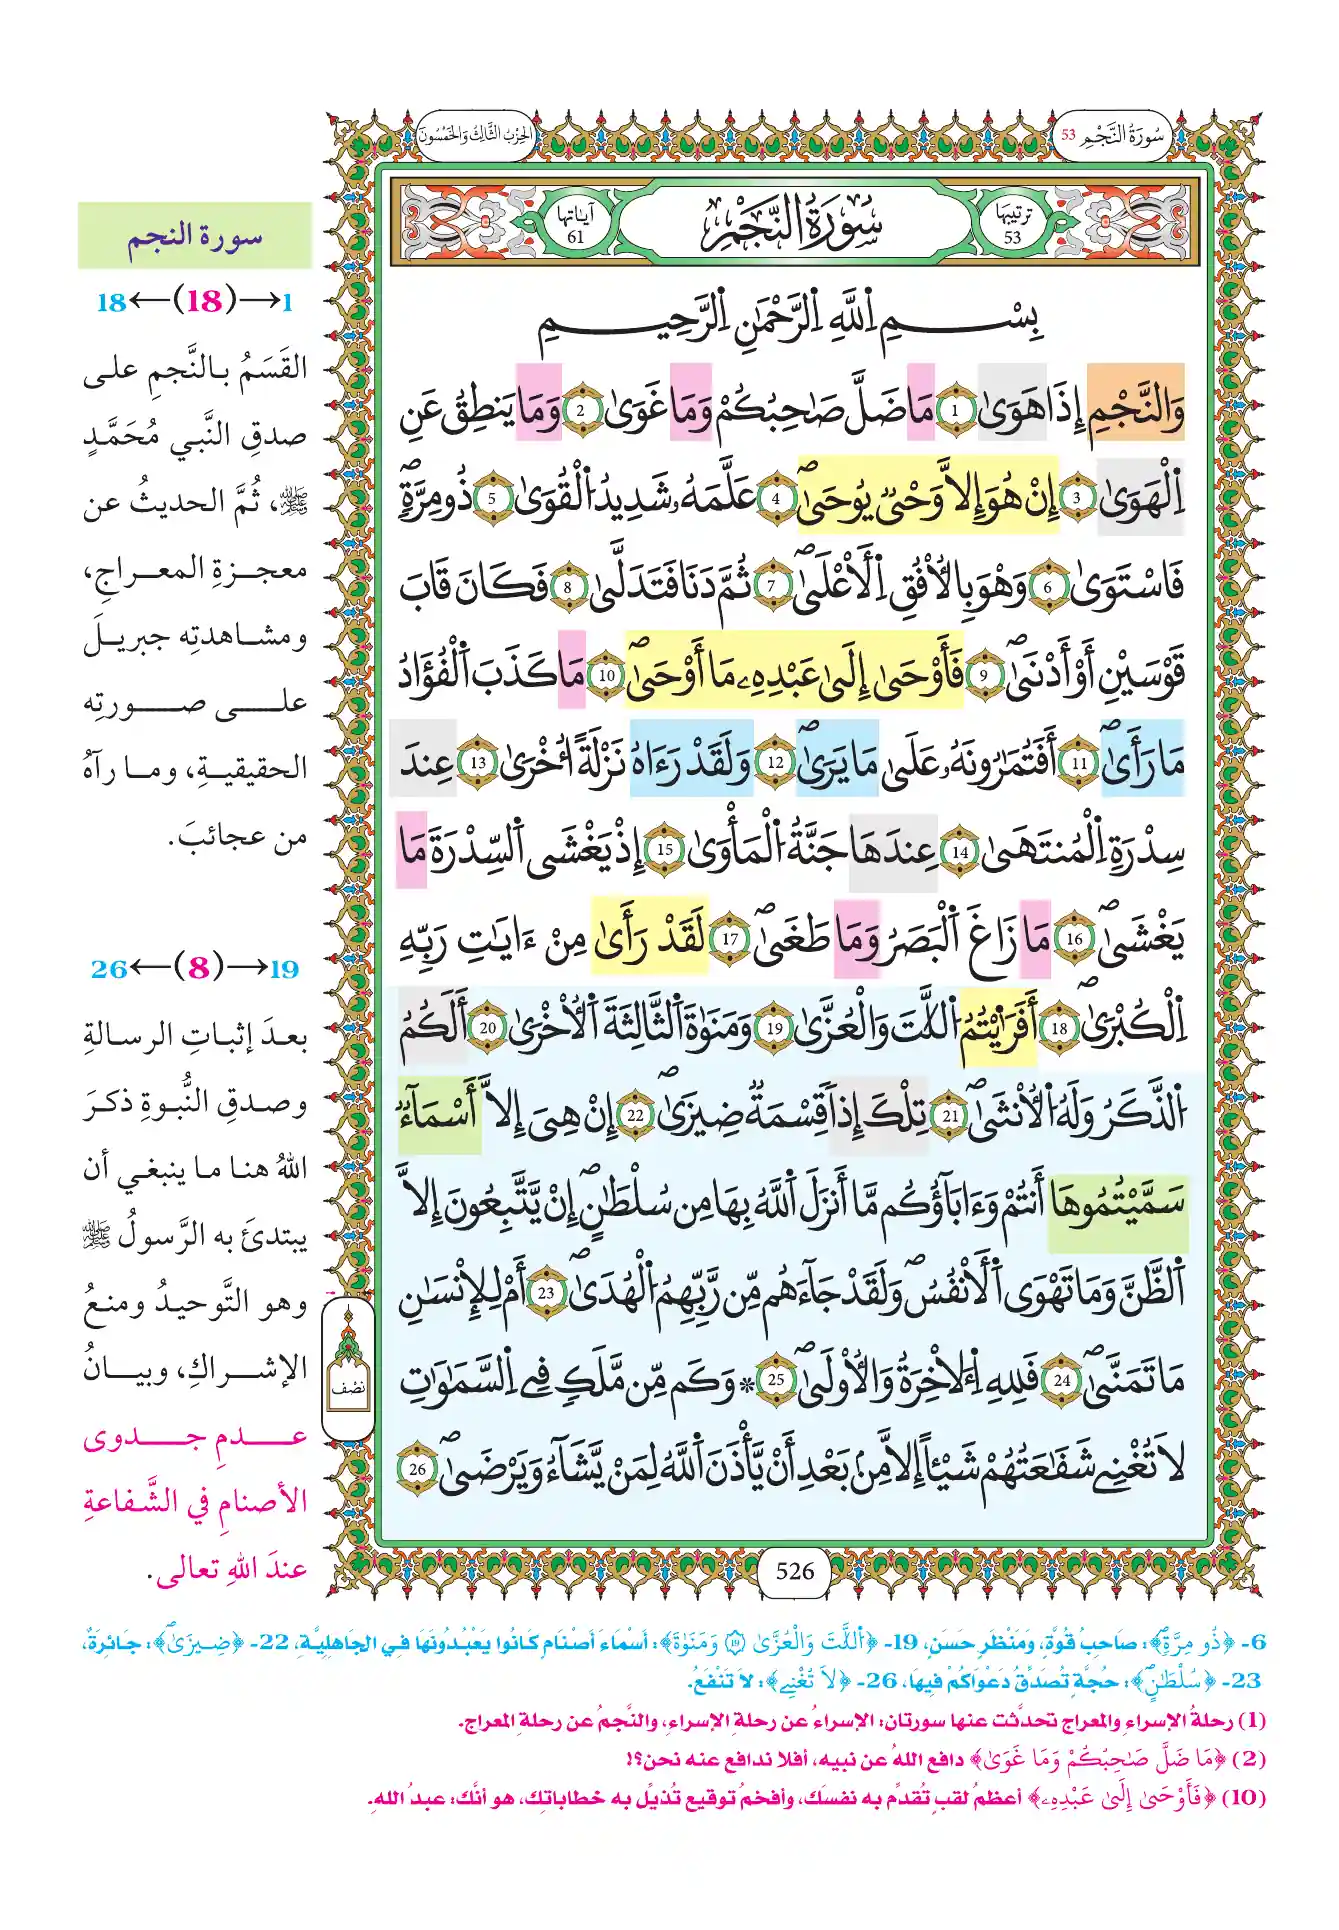 سُورَةُ النَّجْمِ 53
الحِزْبُ الثَّالِثُ وَالخَمْسُونَ
ترتيبها 53
سُورَةُ النَّجْمِ
آياتها 61
بِسْمِ اِللَّهِ اِلرَّحْمَٰنِ اِلرَّحِيمِ
وَالنَّجْمِ إِذَا هَوَىٰ 1 مَا ضَلَّ صَاحِبُكُمْ وَمَا غَوَىٰ 2 وَمَا يَنطِقُ عَنِ
اِلْهَوَىٰ 3 إِنْ هُوَ إِلَّا وَحْيٌ يُوحَىٰ 4 عَلَّمَهُۥ شَدِيدُ اُلْقُوَىٰ 5 ذُو مِرَّةٍ
فَاسْتَوَىٰ 6 وَهُوَ بِالْأُفُقِ اِلْأَعْلَىٰ 7 ثُمَّ دَنَا فَتَدَلَّىٰ 8 فَكَانَ قَابَ
قَوْسَيْنِ أَوْ أَدْنَىٰ 9 فَأَوْحَىٰ إِلَىٰ عَبْدِهِۦ مَا أَوْحَىٰ 10 مَا كَذَبَ اَلْفُؤَادُ
مَا رَأَىٰ 11 أَفَتُمَٰرُونَهُۥ عَلَىٰ مَا يَرَىٰ 12 وَلَقَدْ رَءَاهُ نَزْلَةً اُخْرَىٰ 13 عِندَ
سِدْرَةِ اِلْمُنتَهَىٰ 14 عِندَهَا جَنَّةُ اُلْمَأْوَىٰ 15 إِذْ يَغْشَى اَلسِّدْرَةَ مَا
يَغْشَىٰ 16 مَا زَاغَ اَلْبَصَرُ وَمَا طَغَىٰ 17 لَقَدْ رَأَىٰ مِنْ ءَايَٰتِ رَبِّهِ
اِلْكُبْرَىٰ 18 أَفَرَٰيْتُمُ اُللَّٰتَ وَالْعُزَّىٰ 19 وَمَنَوٰةَ اَلثَّالِثَةَ اَلْأُخْرَىٰ 20 أَلَكُمُ
اُلذَّكَرُ وَلَهُ اُلْأُنثَىٰ 21 تِلْكَ إِذاً قِسْمَةٌ ضِيزَىٰ 22 إِنْ هِيَ إِلَّا أَسْمَآءٌ
سَمَّيْتُمُوهَا أَنتُمْ وَءَابَآؤُكُم مَّا أَنزَلَ اَللَّهُ بِهَا مِن سُلْطَٰنٍ إِنْ يَّتَّبِعُونَ إِلَّا
اَلظَّنَّ وَمَا تَهْوَى اَلْأَنْفُسُ وَلَقَدْ جَآءَهُم مِّن رَّبِّهِمُ اُلْهُدَىٰ 23 أَمْ لِلْإِنْسَٰنِ
مَا تَمَنَّىٰ 24 فَلِلهِ اِلْأٓخِرَةُ وَالْأُولَىٰ 25 * وَكَم مِّن مَّلَكٍ فِي اِلسَّمَٰوَٰتِ
لَا تُغْنِي شَفَٰعَتُهُمْ شَيْـًٔا إِلَّا مِنۢ بَعْدِ أَنْ يَّأْذَنَ اَللَّهُ لِمَنْ يَّشَآءُ وَيَرْضَىٰ 26
نصف
526
سورة النجم
1→(18)←18
القَسَمُ بالنَّجمِ على
صدقِ النَّبي مُحَمَّدٍ
ﷺ، ثُمَّ الحديثُ عن
معجزةِ المعراجِ،
ومشاهدتِه جبريلَ
على صورتِه
الحقيقيةِ، وما رآهُ
من عجائبَ.
19→(8)←26
بعدَ إثباتِ الرسالةِ
وصدقِ النُّبوةِ ذكرَ
اللهُ هنا ما ينبغي أن
يبتدئَ به الرَّسولُ ﷺ
وهو التَّوحيدُ ومنعُ
الإشراكِ، وبيانُ
عدمِ جدوى
الأصنامِ في الشَّفاعةِ
عندَ اللهِ تعالى.
6- ﴿ذُو مِرَّةٍ﴾: صَاحِبُ قُوَّةٍ، وَمَنْظَرٍ حَسَنٍ، 19- ﴿اُللَّٰتَ وَالْعُزَّىٰ ١٩ وَمَنَوٰةَ﴾: أَسْمَاءَ أَصْنَامٍ كَانُوا يَعْبُدُونَهَا فِي الجَاهِلِيَّةِ، 22- ﴿ضِيزَىٰ﴾: جَائِرَةٌ،
23- ﴿سُلْطَٰنٍ﴾: حُجَّةٍ تُصَدِّقُ دَعْوَاكُمْ فِيهَا، 26- ﴿لَا تُغْنِي﴾: لَا تَنْفَعُ.
(1) رحلةُ الإسراءِ والمعراجِ تحدَّثت عنها سورتان: الإسراءُ عن رحلةِ الإسراءِ، والنَّجمُ عن رحلةِ المعراجِ.
(2) ﴿مَا ضَلَّ صَاحِبُكُمْ وَمَا غَوَىٰ﴾ دافع اللهُ عن نبيه، أفلا ندافع عنه نحن؟!
(10) ﴿فَأَوْحَىٰ إِلَىٰ عَبْدِهِۦ﴾ أعظمُ لقبٍ تُقدِّم به نفسَك، وأفخمُ توقيعٍ تُذيِّل به خطاباتِك، هو أنَّك: عبدُ اللهِ.